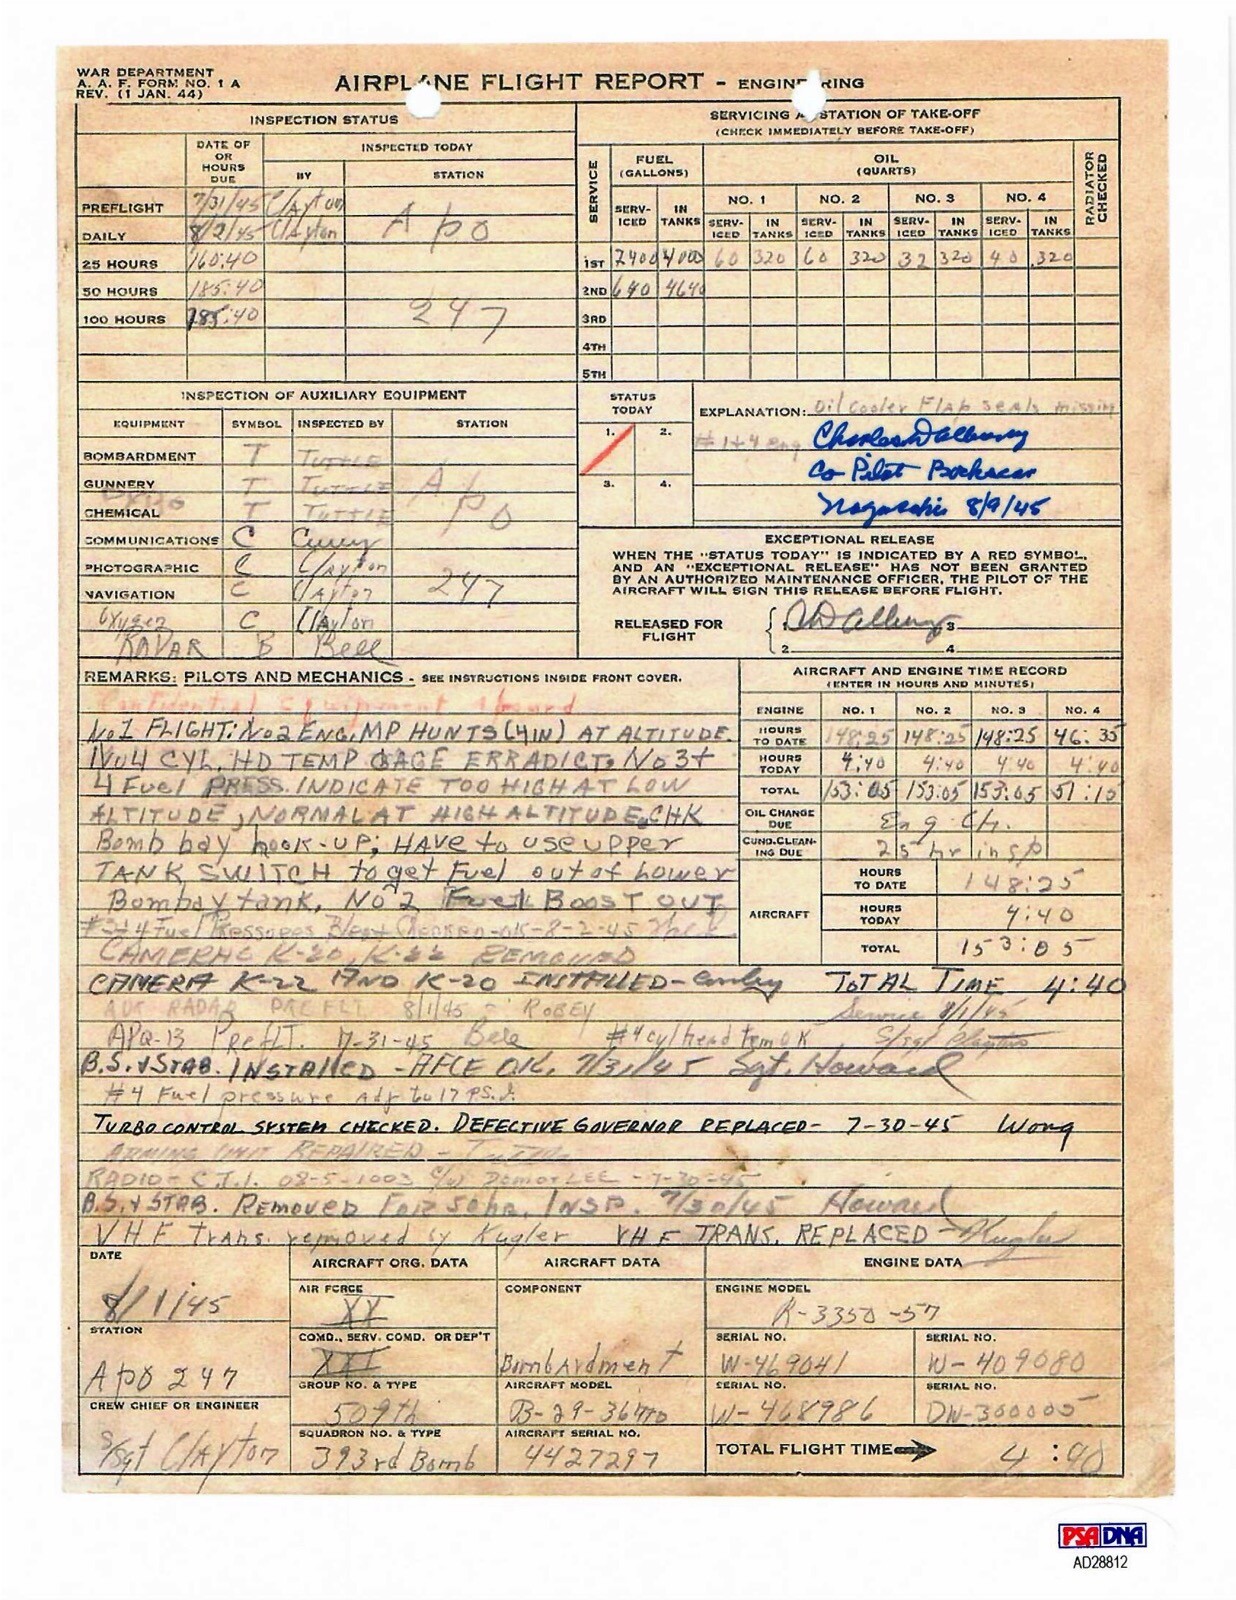 WAR DEPARTMENT
A. A. F. FORM NO. 1 A
REV. (1 JAN. 44)
AIRPLANE FLIGHT REPORT - ENGINEERING
INSPECTION STATUS
DATE OF OR HOURS DUE
INSPECTED TODAY
BY
STATION
PREFLIGHT 7/31/45 Clayton
DAILY 8/2/45 Clayton
Apo
25 HOURS 160:40
50 HOURS 185:40
100 HOURS 285:40
247
SERVICING AT STATION OF TAKE-OFF
(CHECK IMMEDIATELY BEFORE TAKE-OFF)
SERVICE
FUEL (GALLONS)
OIL (QUARTS)
RADIATOR CHECKED
NO. 1 NO. 2 NO. 3 NO. 4
SERV-ICED IN TANKS SERV-ICED IN TANKS SERV-ICED IN TANKS SERV-ICED IN TANKS SERV-ICED IN TANKS
1ST 2400 4000 60 320 60 320 32 320 40 320
2ND 640 4640
3RD
4TH
5TH
INSPECTION OF AUXILIARY EQUIPMENT
EQUIPMENT SYMBOL INSPECTED BY STATION
BOMBARDMENT T TUTTLE
GUNNERY T TUTTLE
CHEMICAL T TUTTLE
Apo
COMMUNICATIONS C
PHOTOGRAPHIC C Clayton
NAVIGATION C Clayton
247
Oxygen C Clayton
RADAR B Bell
STATUS TODAY
1. 2.
3. 4.
EXPLANATION: Oil Cooler Flap seals missing
#1+4 eng
Charles D Albury
Co Pilot Bockscar
Nagasaki 8/9/45
EXCEPTIONAL RELEASE
WHEN THE "STATUS TODAY" IS INDICATED BY A RED SYMBOL,
AND AN "EXCEPTIONAL RELEASE" HAS NOT BEEN GRANTED
BY AN AUTHORIZED MAINTENANCE OFFICER, THE PILOT OF THE
AIRCRAFT WILL SIGN THIS RELEASE BEFORE FLIGHT.
RELEASED FOR FLIGHT
1. CD Albury 3
2. 4
REMARKS: PILOTS AND MECHANICS - SEE INSTRUCTIONS INSIDE FRONT COVER.
Confidential Equipment Aboard
No1 FLIGHT: No2 ENG. MP HUNTS (4IN) AT ALTITUDE.
No4 CYL. HD TEMP GAGE ERRADICT. No3+
4 Fuel PRESS. INDICATE TOO HIGH AT LOW
ALTITUDE, NORMAL AT HIGH ALTITUDE. CHK
Bomb bay hook-UP; HAVE to use upper
TANK SWITCH to get Fuel out of Lower
Bombay tank. No 2 Fuel BOOST OUT
#3+4 Fuel Pressures 8-2-45
CAMERAC K-20, K-22 REMOVED
CAMERA K-22 AND K-20 INSTALLED- TOTAL TIME 4:40
RADAR PREFLT. 8/1/45 - ROBEY Service 8/1/45
APQ-13 PreFLT. 7-31-45 Bell #4 cyl head temp OK S/Sgt Clayton
B.S. & STAB. INSTALLED - AFCE OK. 7/31/45 Sgt. Howard
#4 Fuel pressure adj to 17 PS.I.
TURBO CONTROL SYSTEM CHECKED. DEFECTIVE GOVERNOR REPLACED- 7-30-45 Wong
ARMING UNIT REPAIRED - Tuttle
RADIO - C.T.I. 08-5-1003 7-30-45
B.S. & STAB. REMOVED FOR 50hr. INSP. 7/30/45 Howard
VHF Trans. removed by Kugler VHF TRANS. REPLACED - Kugler
AIRCRAFT AND ENGINE TIME RECORD
(ENTER IN HOURS AND MINUTES)
ENGINE NO. 1 NO. 2 NO. 3 NO. 4
HOURS TO DATE 148:25 148:25 148:25 46:35
HOURS TODAY 4:40 4:40 4:40 4:40
TOTAL 153:05 153:05 153:05 51:15
OIL CHANGE DUE Eng Ch.
CUNO.CLEANING DUE 25 hr insp
AIRCRAFT
HOURS TO DATE 148:25
HOURS TODAY 4:40
TOTAL 153:05
DATE
8/1/45
STATION
APO 247
CREW CHIEF OR ENGINEER
S/Sgt Clayton
AIRCRAFT ORG. DATA
AIR FORCE
XX
COMD., SERV. COMD. OR DEP'T
XXI
GROUP NO. & TYPE
509th
SQUADRON NO. & TYPE
393rd Bomb
AIRCRAFT DATA
COMPONENT
Bombardment
AIRCRAFT MODEL
B-29-36 MO
AIRCRAFT SERIAL NO.
4427297
ENGINE DATA
ENGINE MODEL
R-3350-57
SERIAL NO. SERIAL NO.
W-469041 W-409080
SERIAL NO. SERIAL NO.
W-468986 DW-300005
TOTAL FLIGHT TIME 4:40
PSA DNA
AD28812